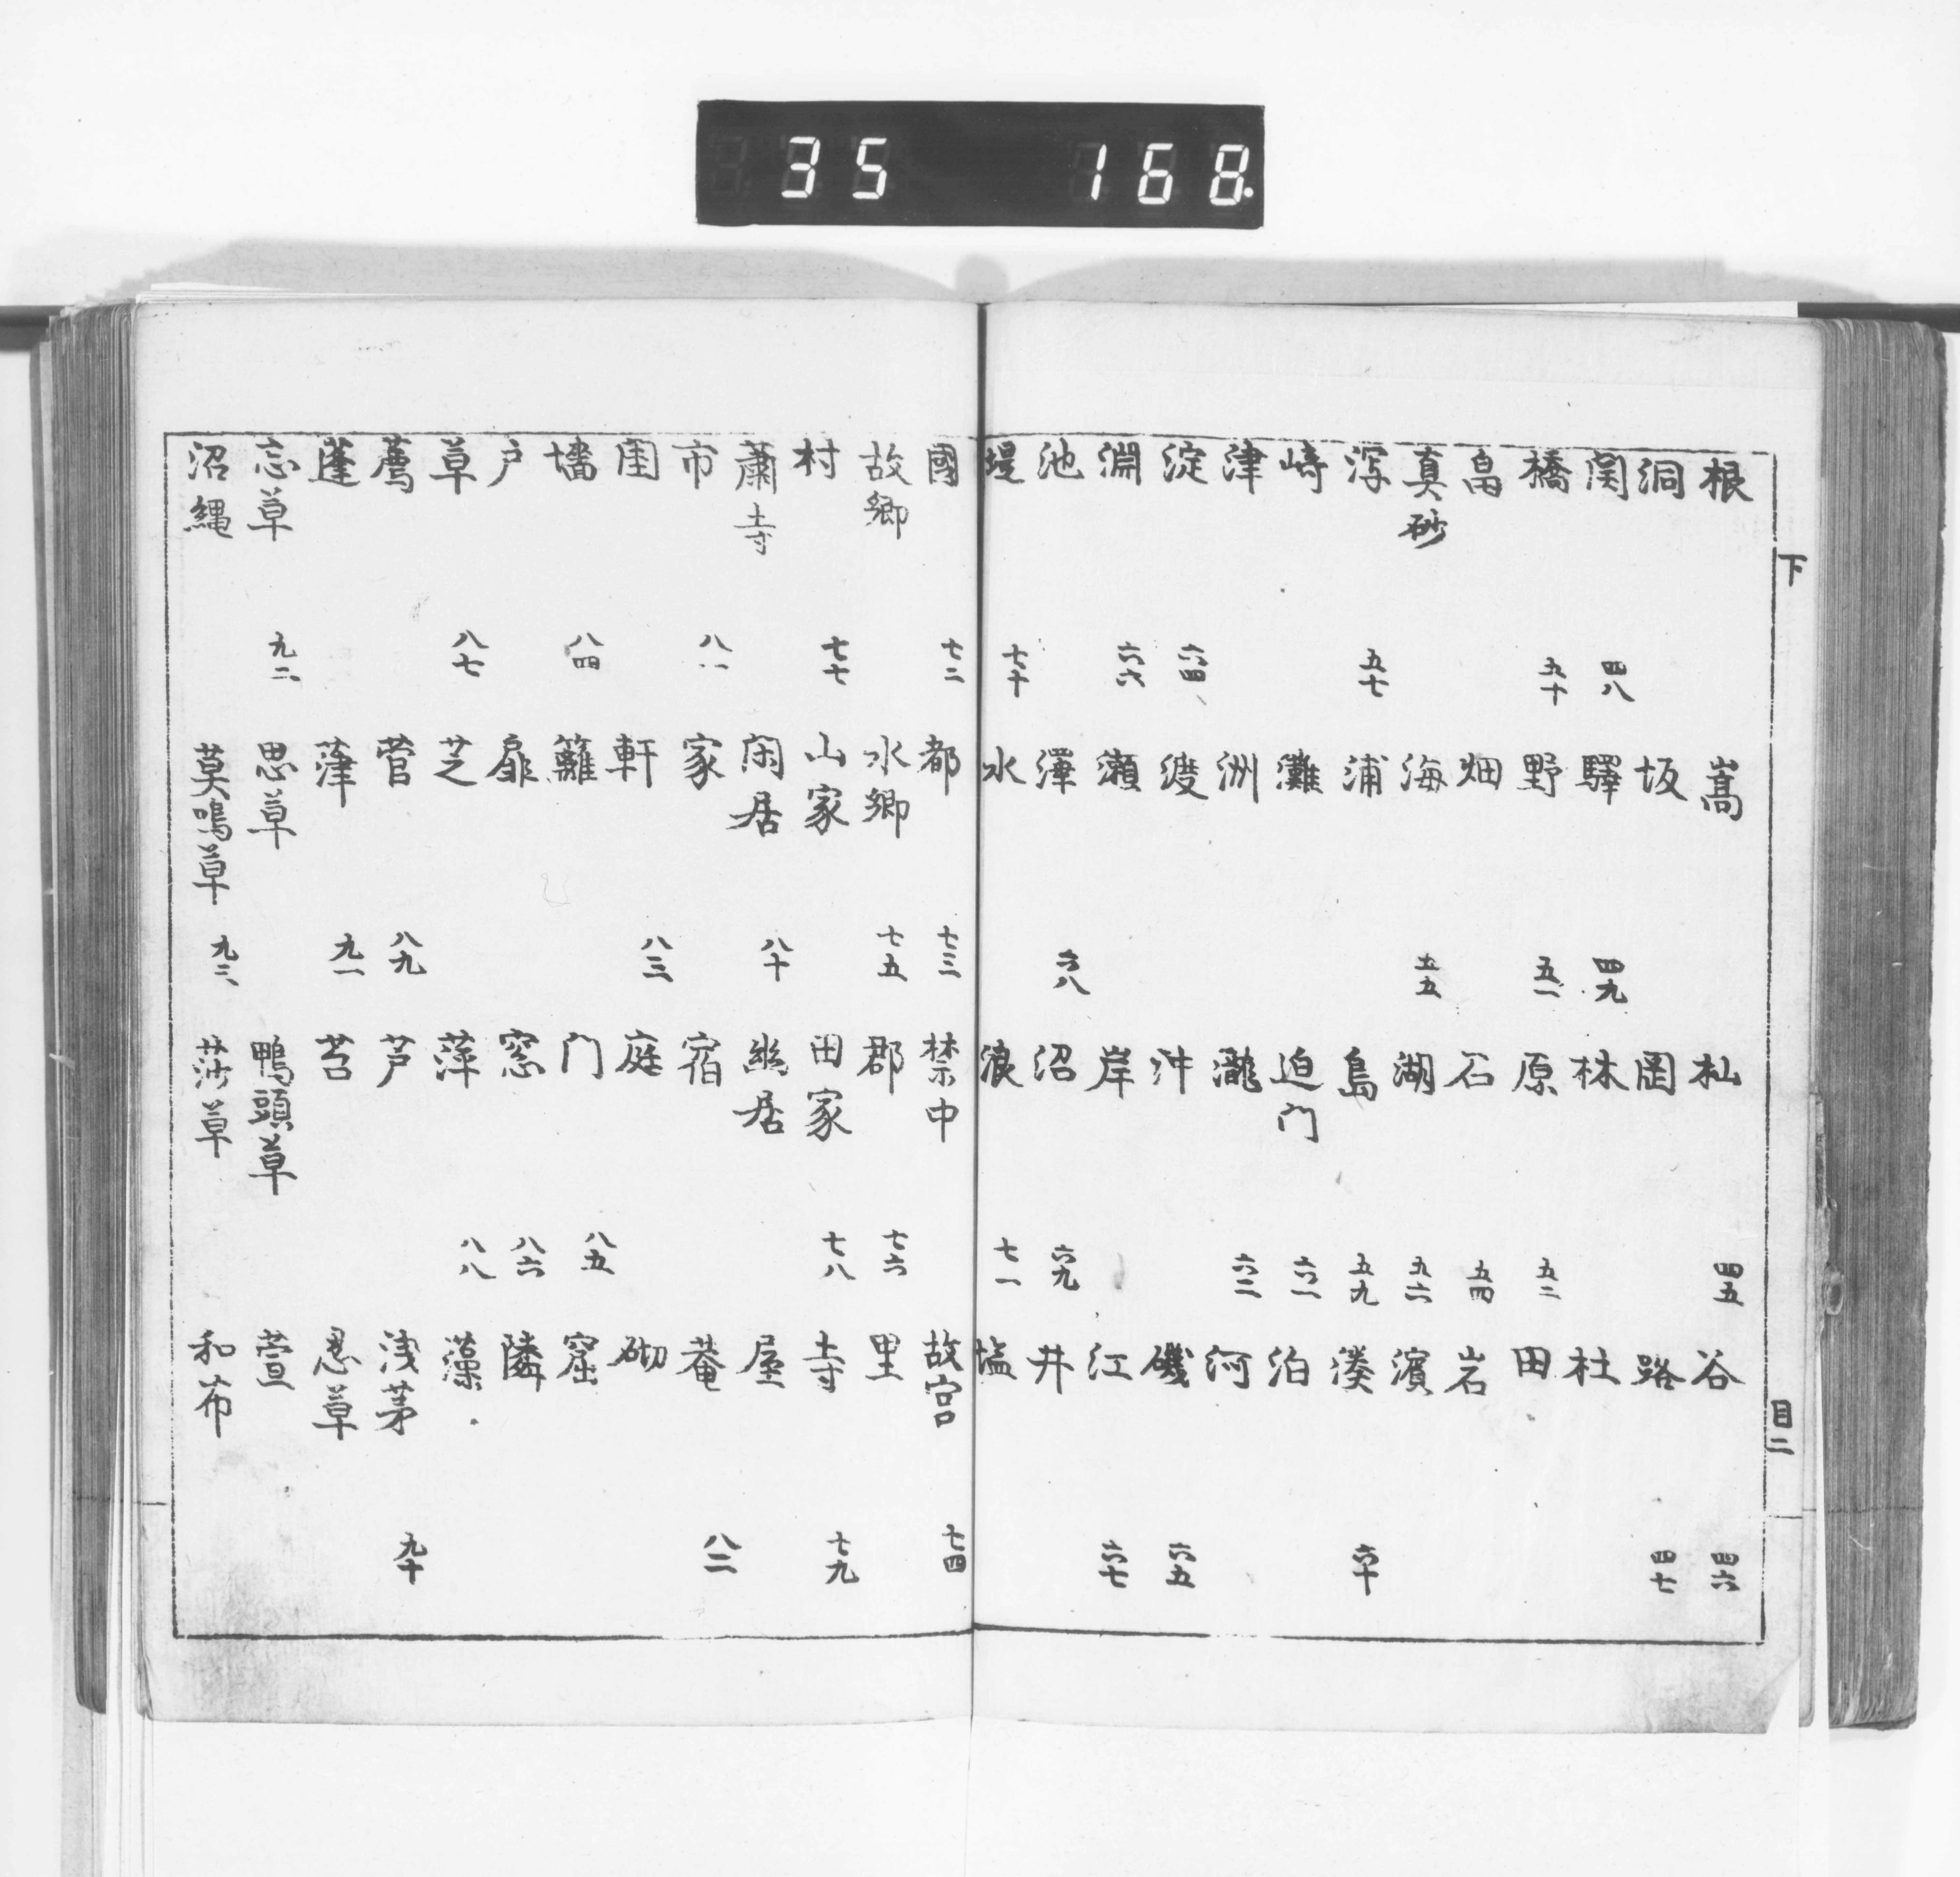 35 168
下
目二
根 嵩 杣 四五 谷 四六
洞 坂 岡 路 四七
関 四八 驛 四九 林 杜
橋 五十 野 五一 原 五二 田
畠 畑 石 五四 岩
真砂 海 五五 湖 五六 濱
五七 浦 島 五九 湊 六十
崎 灘 迫门 六一 泊
津 洲 瀧 六二 河
淀 六四 渡 沖 磯 六五
淵 六六 瀬 岸 江 六七
池 澤 六八 沼 六九 井
堤 七十 水 浪 七一 塩
國 七二 都 七三 禁中 故宮 七四
故郷 水郷 七五 郡 七六 里
村 七七 山家 田家 七八 寺 七九
蕭寺 閑居 八十 幽居 屋
市 八一 家 宿 菴 八二
閨 軒 八三 庭 砌
墻 八四 籬 门 八五 窟
戸 扉 窓 八六 隣
草 八七 芝 萍 八八 藻
薦 菅 八九 芦 浅茅 九十
蓬 葎 九一 苔 忍草
忘草 九二 思草 鴨頭草 萱
沼縄 莫鳴草 九三 莎草 和布